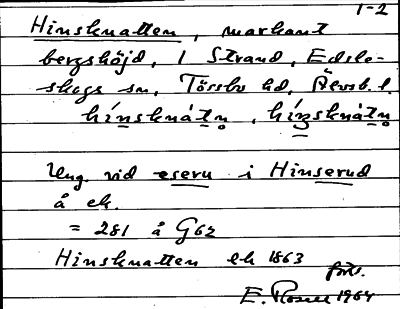 1-2
Hinsknatten, markant
bergshöjd, I Strand, Edsle-
skogs sn, Tössbo hd, Älvsb. l.
hínsknàtn̥, hínsknàtn̥
Ung. vid eseru i Hinserud
å ek.
= 281 å G62
Hinsknatten ek 1863
forts.
E. Rosell 1964